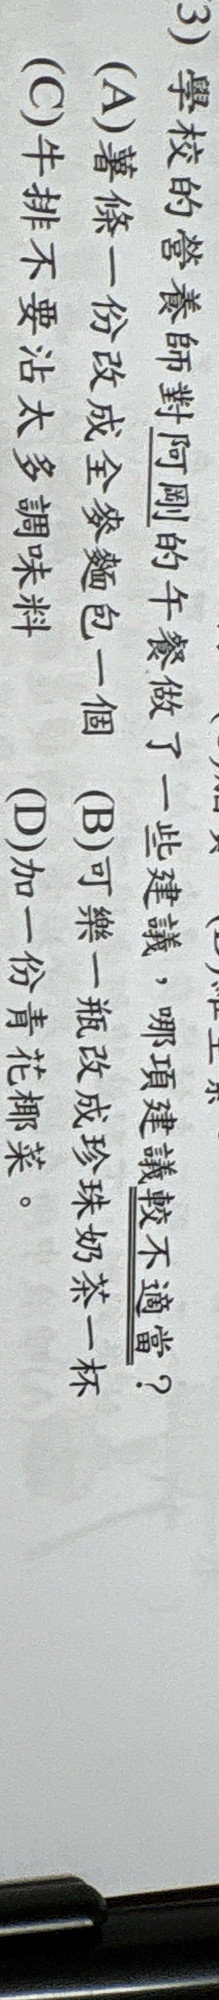 3) 學校的營養師對阿剛的午餐做了一些建議，哪項建議較不適當？
(A)薯條一份改成全麥麵包一個 (B)可樂一瓶改成珍珠奶茶一杯
(C)牛排不要沾太多調味料 (D)加一份青花椰菜。